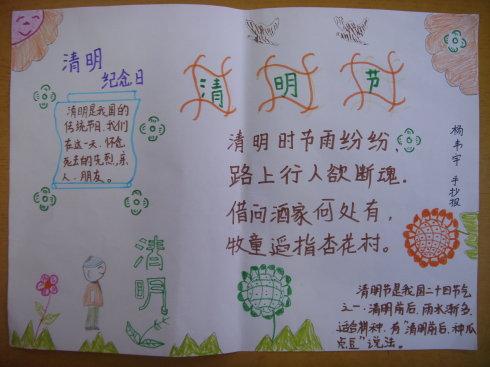 清明
纪念日
清明是我国的
传统节日,我们
在这一天,怀念
死去的先烈,亲
人,朋友。
清明
清 明 节
清明时节雨纷纷,
路上行人欲断魂.
借问酒家何处有,
牧童遥指杏花村。
杨韦宇 手抄报
清明节是我国二十四节气
之一.清明前后,雨水渐多,
适合耕种.有"清明前后,种瓜
点豆"说法。